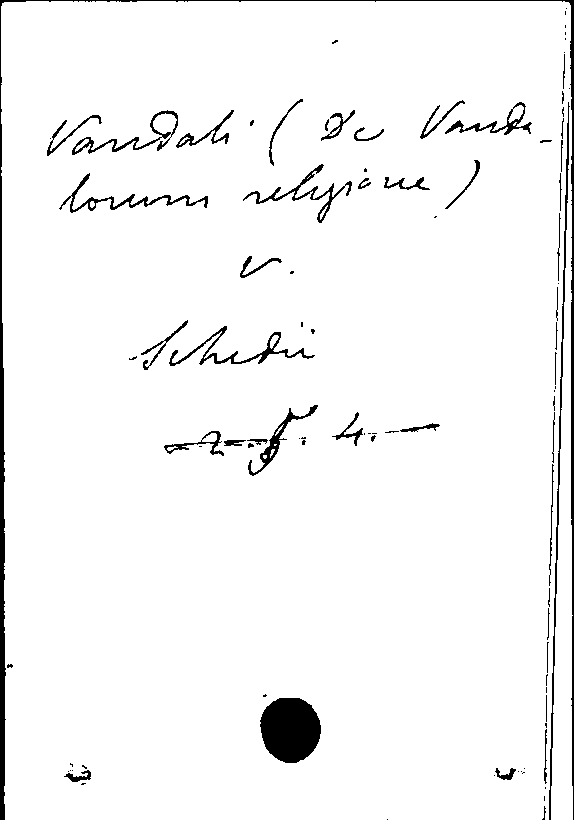 Vandali (De Vanda-
lorum religione)
v.
Schedii
2. F. 4.